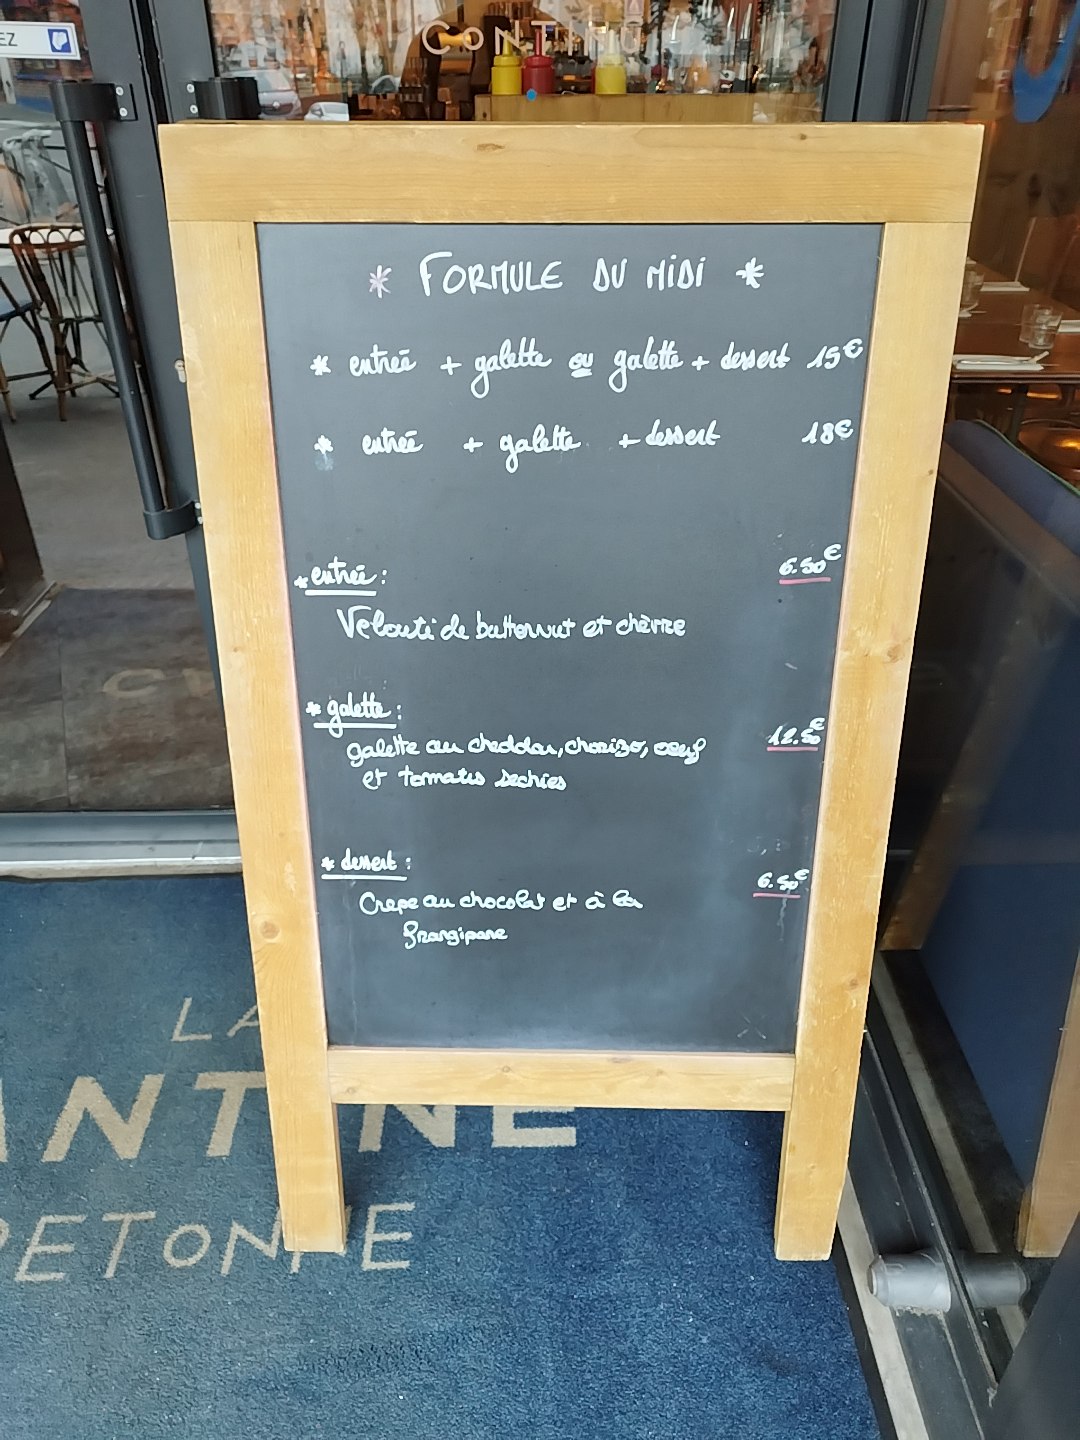 EZ
CONTINU
* FORMULE DU MIDI *
* entrée + galette ou galette + dessert 15€
* entrée + galette + dessert 18€
* entrée : 6.50€
Velouté de butternut et chèvre
* galette :
galette au cheddar, chorizo, oeuf 12.50€
et tomates sechées
* dessert : 6.50€
Crepe au chocolat et à la
frangipane
LA
ANTINE
RETONNE